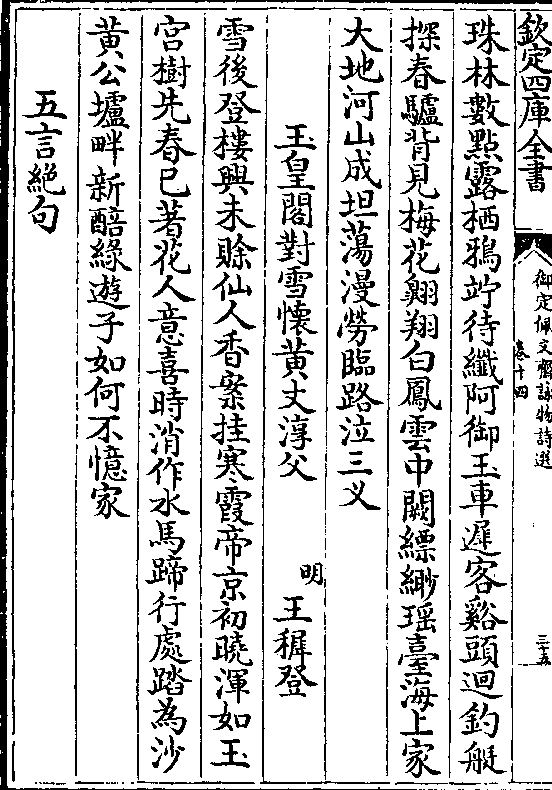 欽定四庫全書
御定佩文齋詠物詩選
卷十四
三十五
珠林數點露栖鴉竚待纖阿御玉車遲客谿頭迴釣艇
探春驢背見梅花翺翔白鳳雲中闕縹緲瑶臺海上家
大地河山成坦蕩漫勞臨路泣三义
玉皇閣對雪懷黄丈淳父
明 王穉登
雪後登樓興未賖仙人香案挂寒霞帝京初曉渾如玉
宮樹先春已著花人意喜時消作水馬蹄行處踏為沙
黄公壚畔新醅綠遊子如何不憶家
五言絶句